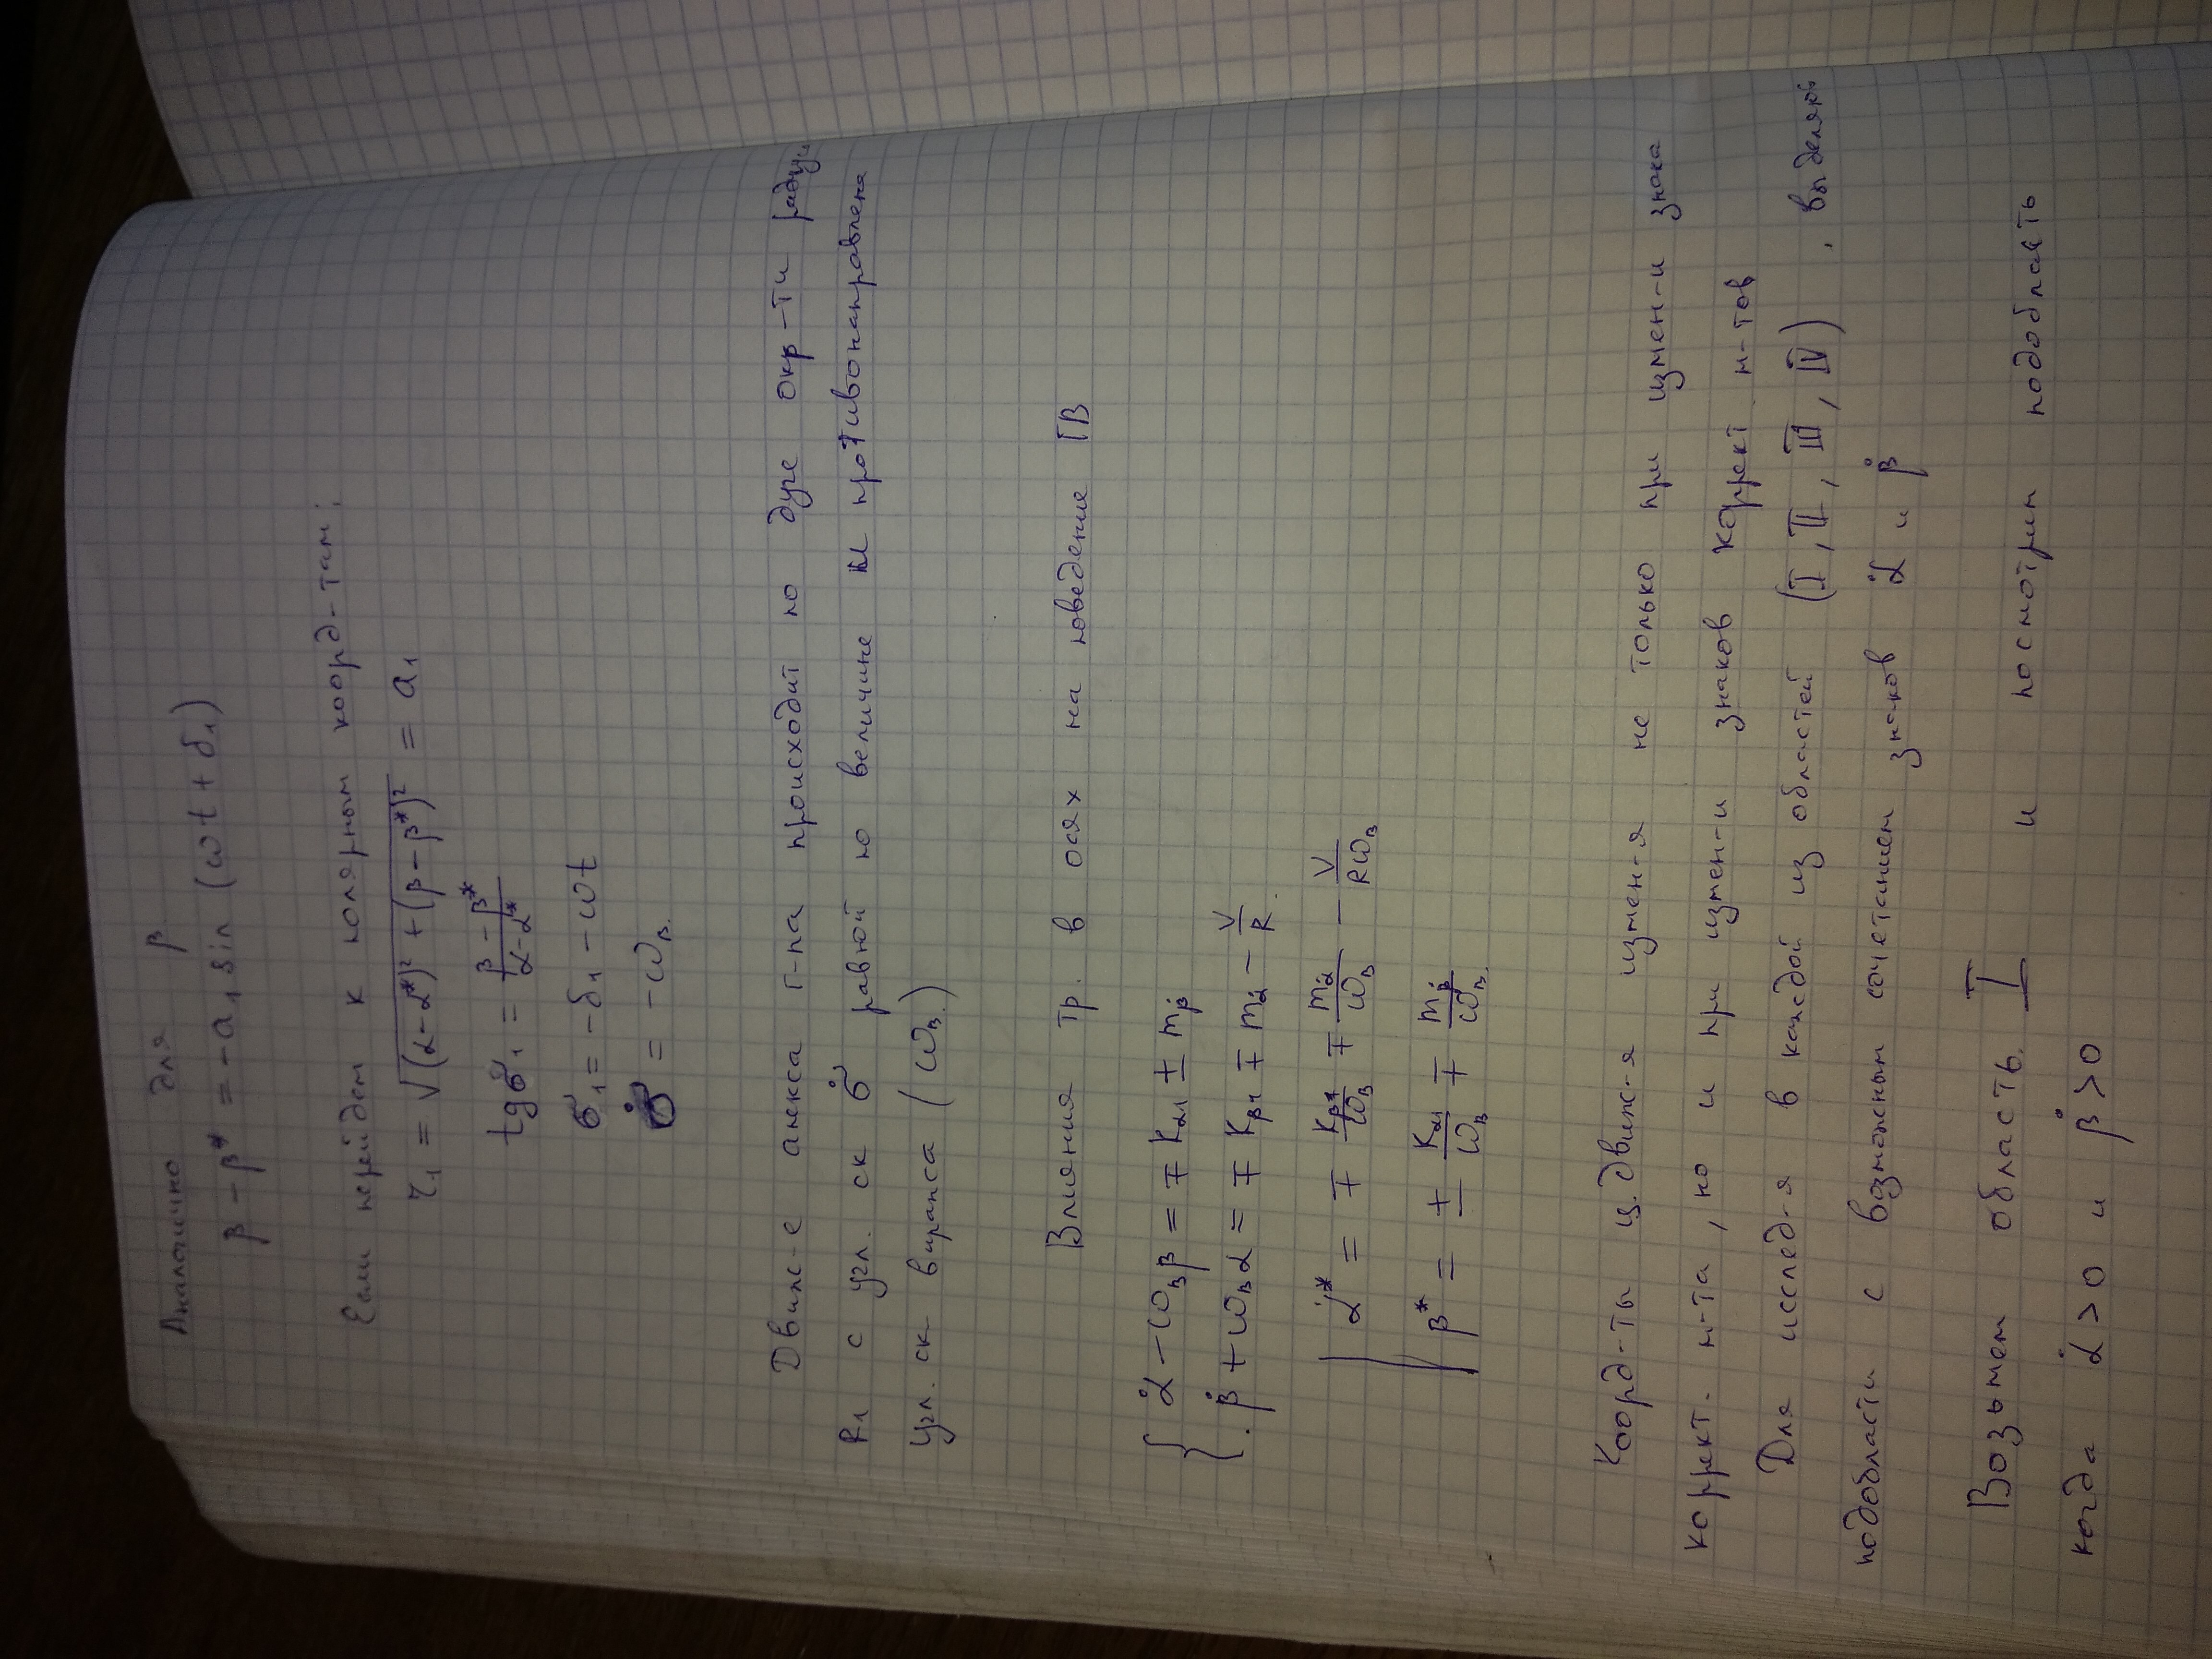 Аналогично для β
β − β* = −a₁ sin (ωt + δ₁)
Если перейдем к полярным коорд-там:
r₁ = √((α−α*)² + (β−β*)²) = a₁
tg σ₁ = (β−β*)/(α−α*)
σ₁ = −δ₁ − ωt
σ̇ = −ω_в.
Движ-е апекса г-па происходит по дуге окр-ти радиу
R₁ с угл. ск σ̇ равной по величине и противонаправлена
угл. ск виранса (ω_в.)
Влияния тр. в осях на поведение ГВ
{ α̇ − ω_вβ = ∓ K_α₁ ± m_β̇
. β̇ + ω_вα = ∓ K_β₁ ∓ m_α̇ − V/R.
{ α* = ∓ K_β*/ω_в ∓ m_α̇/ω_в − V/Rω_в
β* = ± K_α₁/ω_в ∓ m_β̇/ω_в.
Коорд-ты ц.движ-я измен-я не только при измен-и знака
коррект. м-та, но и при измен-и знаков коррект м-тов
Для исслед-я в каждой из областей (I, II, III, IV), выделяю
подобласти с возможным сочетанием знаков α̇ и β̇
Возьмем область I и посмотрим подобласть
когда α̇ > 0 и β̇ > 0